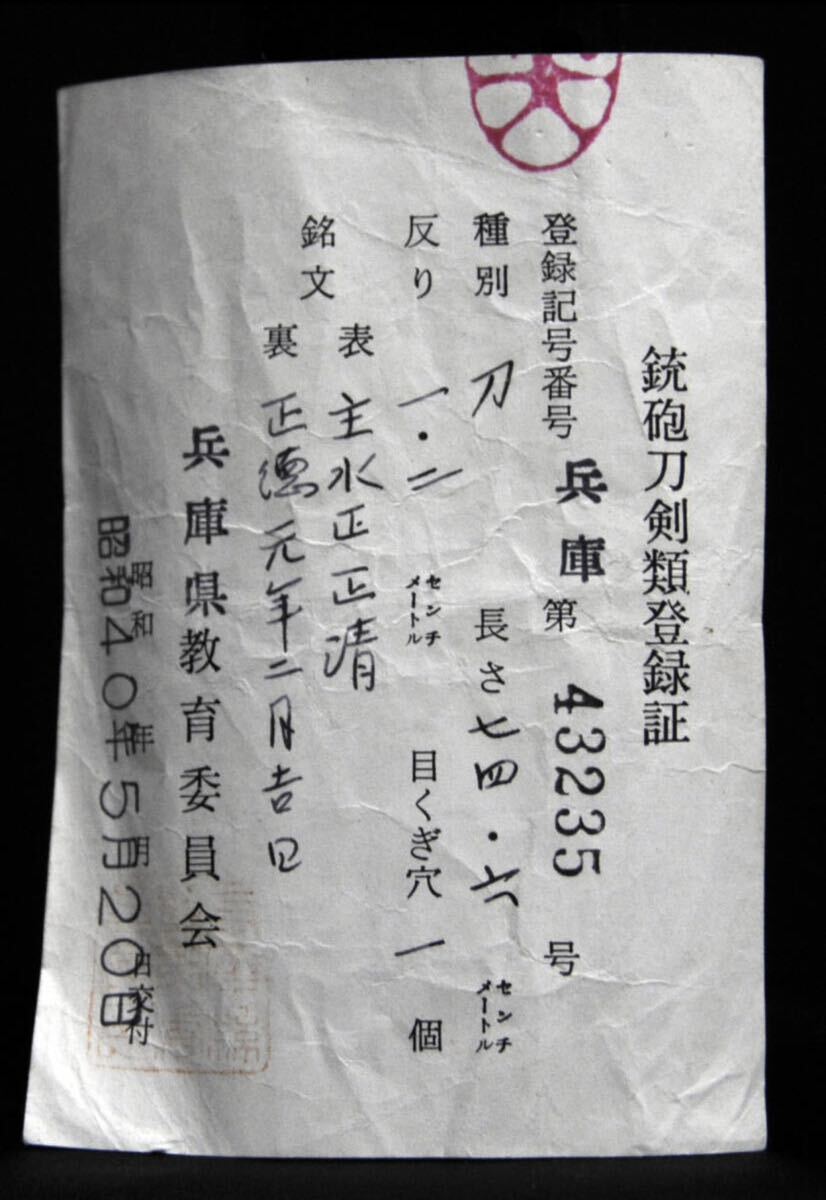 銃砲刀剣類登録証
登録記号番号 兵庫 第 43235 号
種別 刀 長さ 七四・六 センチメートル
反り 一・二 センチメートル 目くぎ穴 一 個
銘文 表 主水正正清
裏 正徳元年二月吉日
兵庫県教育委員会
昭和 年 月 日交付
昭和40年5月20日